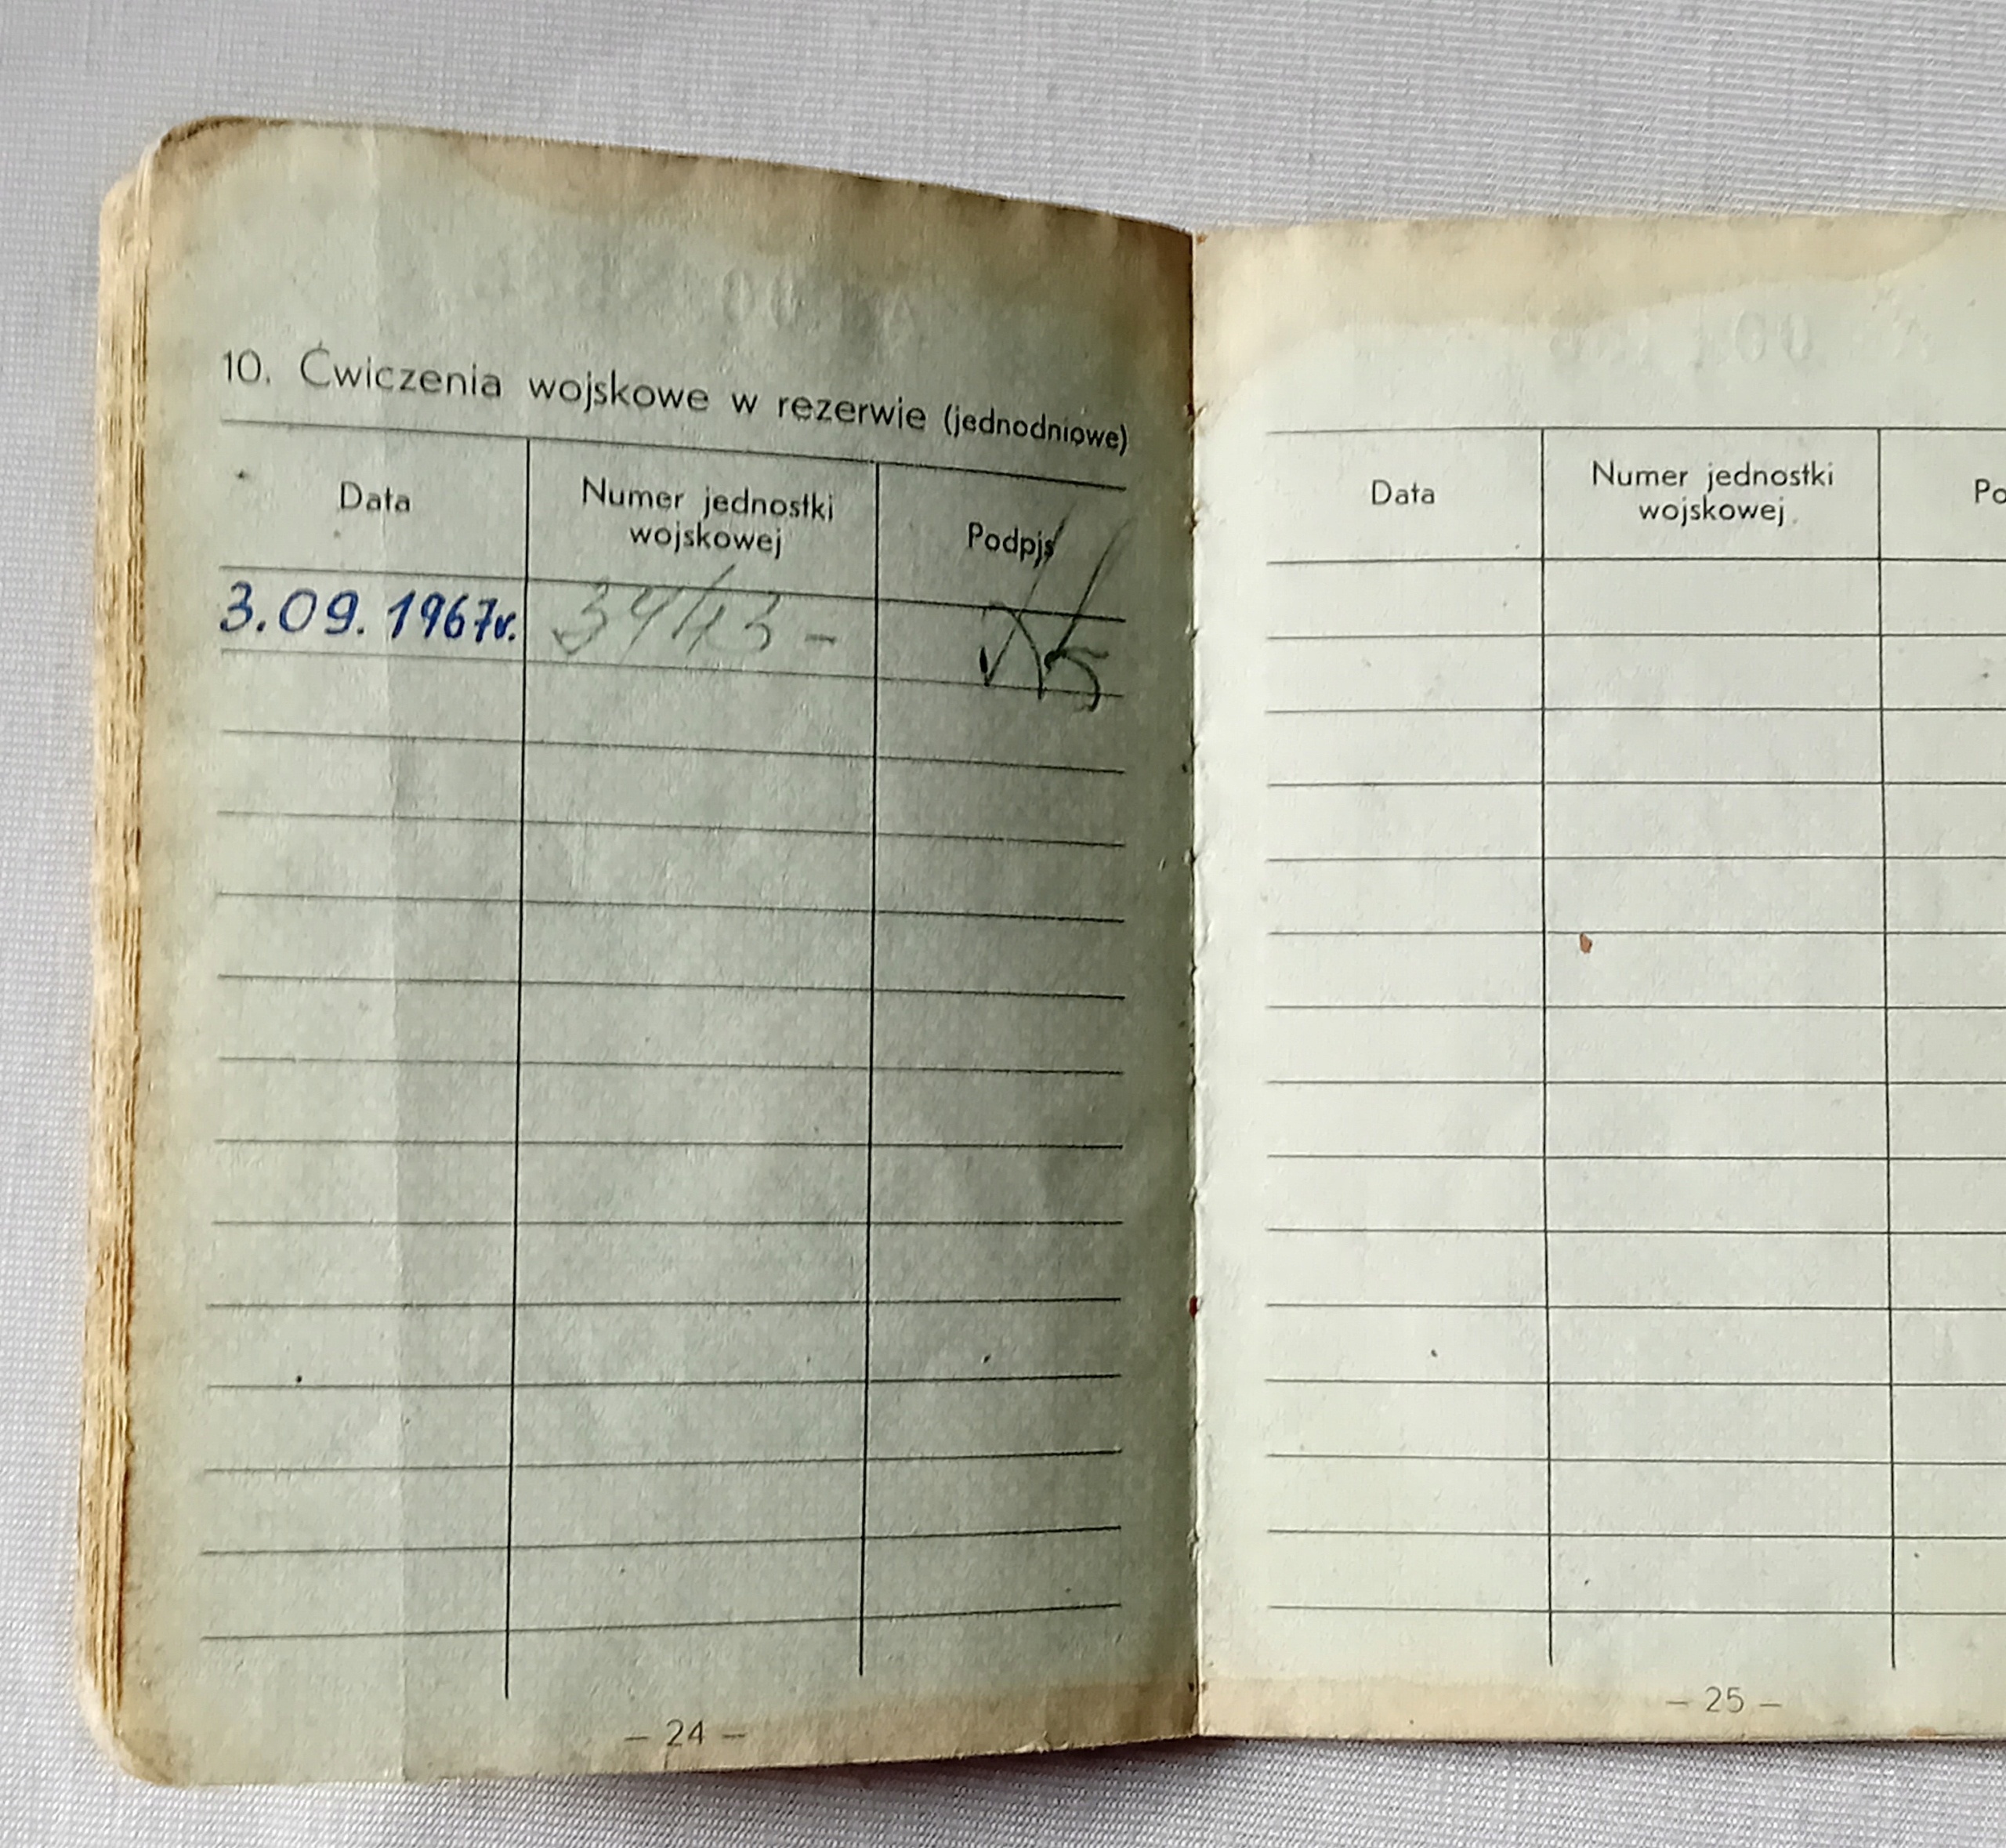 10. Ćwiczenia wojskowe w rezerwie (jednodniowe)
Data
Numer jednostki
wojskowej
Podpis
3.09.1967r.
– 24 –
Data
Numer jednostki
wojskowej
Po
– 25 –